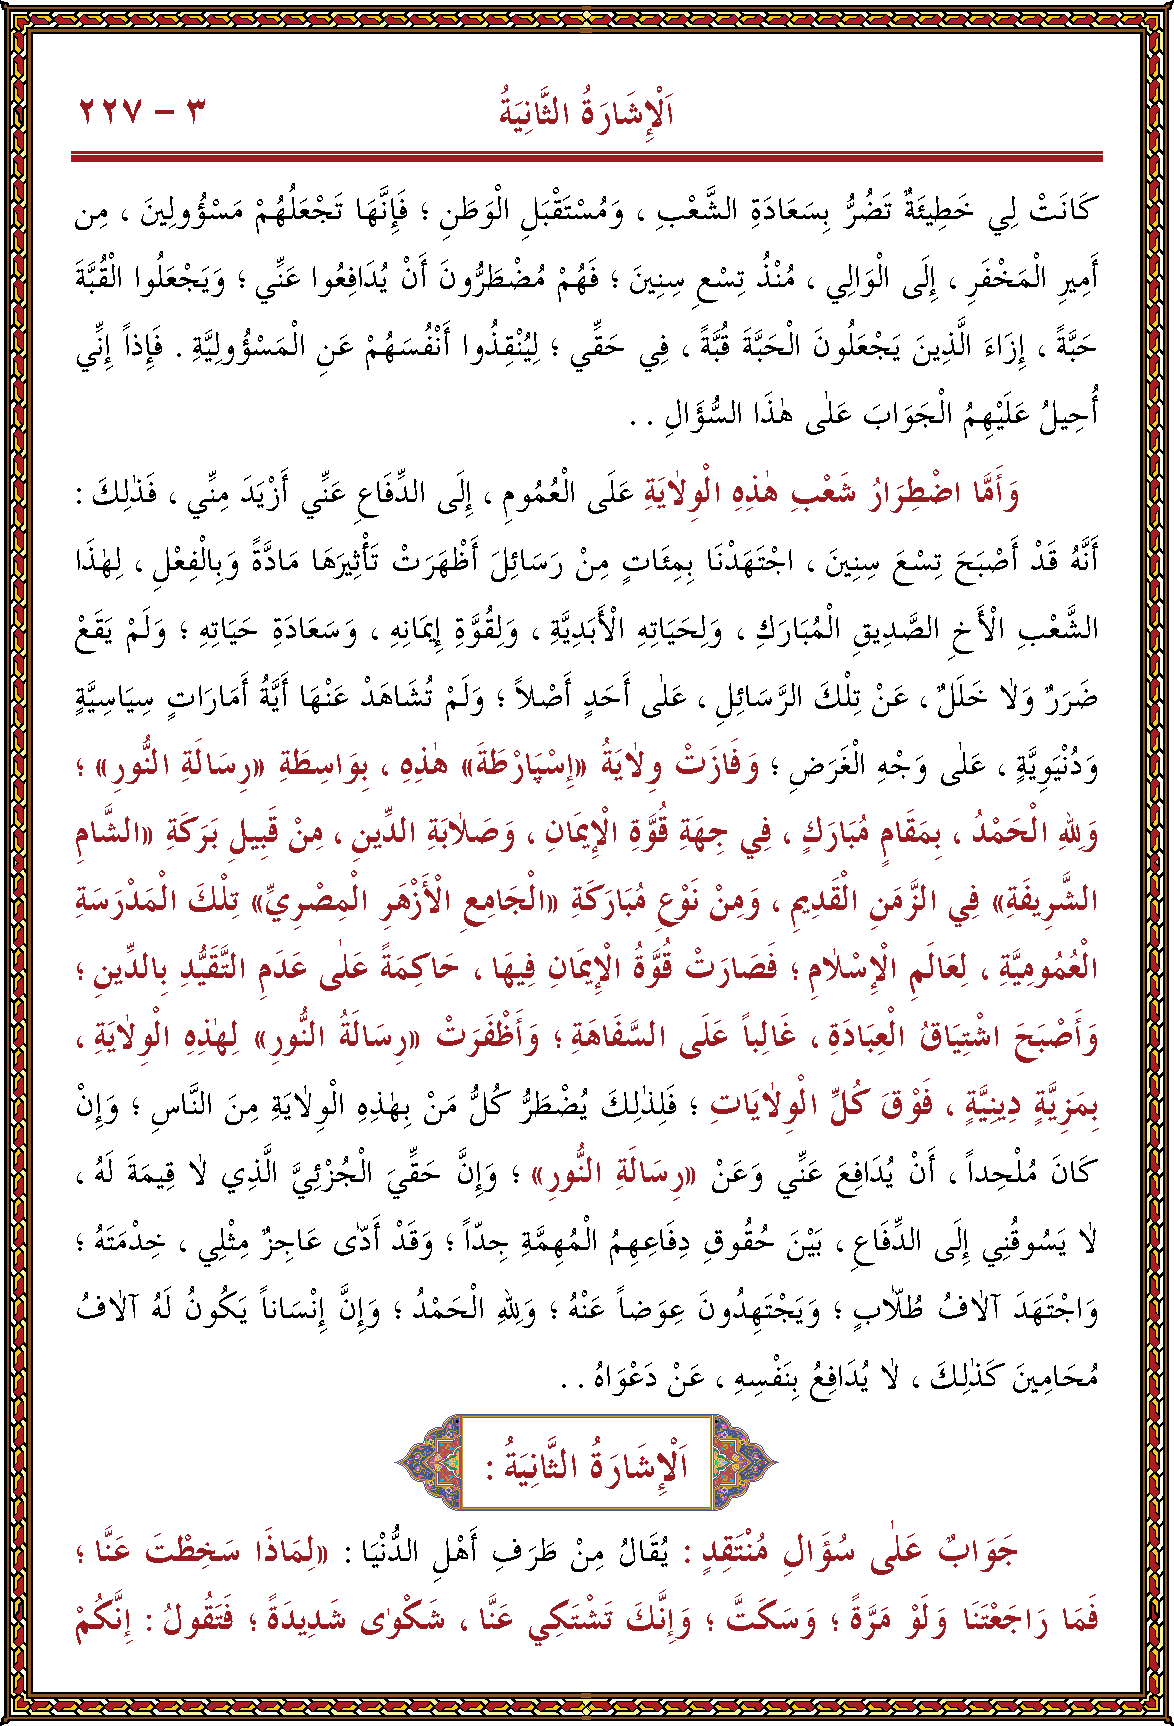 اَلْإِشَارَةُ الثَّانِيَةُ
٣ – ٢٢٧
كَانَتْ لِي خَطِيئَةٌ تَضُرُّ بِسَعَادَةِ الشَّعْبِ ، وَمُسْتَقْبَلِ الْوَطَنِ ؛ فَإِنَّهَا تَجْعَلُهُمْ مَسْؤُولِينَ ، مِن
أَمِيرِ الْمَخْفَرِ ، إِلَى الْوَالِي ، مُنْذُ تِسْعِ سِنِينَ ؛ فَهُمْ مُضْطَرُّونَ أَنْ يُدَافِعُوا عَنِّي ؛ وَيَجْعَلُوا الْقُبَّةَ
حَبَّةً ، إِزَاءَ الَّذِينَ يَجْعَلُونَ الْحَبَّةَ قُبَّةً ، فِي حَقِّي ؛ لِيُنْقِذُوا أَنْفُسَهُمْ عَنِ الْمَسْؤُولِيَّةِ . فَإِذاً إِنِّي
أُحِيلُ عَلَيْهِمُ الْجَوَابَ عَلٰى هٰذَا السُّؤَالِ . .
وَأَمَّا اضْطِرَارُ شَعْبِ هٰذِهِ الْوِلاٰيَةِ عَلَى الْعُمُومِ ، إِلَى الدِّفَاعِ عَنِّي أَزْيَدَ مِنِّي ، فَذٰلِكَ :
أَنَّهُ قَدْ أَصْبَحَ تِسْعَ سِنِينَ ، اجْتَهَدْنَا بِمِئَاتٍ مِنْ رَسَائِلَ أَظْهَرَتْ تَأْثِيرَهَا مَادَّةً وَبِالْفِعْلِ ، لِهٰذَا
الشَّعْبِ الْأَخِ الصَّدِيقِ الْمُبَارَكِ ، وَلِحَيَاتِهِ الْأَبَدِيَّةِ ، وَلِقُوَّةِ إِيمَانِهِ ، وَسَعَادَةِ حَيَاتِهِ ؛ وَلَمْ يَقَعْ
ضَرَرٌ وَلاٰ خَلَلٌ ، عَنْ تِلْكَ الرَّسَائِلِ ، عَلٰى أَحَدٍ أَصْلاً ؛ وَلَمْ تُشَاهَدْ عَنْهَا أَيَّةُ أَمَارَاتٍ سِيَاسِيَّةٍ
وَدُنْيَوِيَّةٍ ، عَلٰى وَجْهِ الْغَرَضِ ؛ وَفَازَتْ وِلاٰيَةُ «إِسْپَارْطَةَ» هٰذِهِ ، بِوَاسِطَةِ «رِسَالَةِ النُّورِ» ؛
وَلِلّٰهِ الْحَمْدُ ، بِمَقَامٍ مُبَارَكٍ ، فِي جِهَةِ قُوَّةِ الْإِيمَانِ ، وَصَلاٰبَةِ الدِّينِ ، مِنْ قَبِيلِ بَرَكَةِ «الشَّامِ
الشَّرِيفَةِ» فِي الزَّمَنِ الْقَدِيمِ ، وَمِنْ نَوْعِ مُبَارَكَةِ «الْجَامِعِ الْأَزْهَرِ الْمِصْرِيِّ» تِلْكَ الْمَدْرَسَةِ
الْعُمُومِيَّةِ ، لِعَالَمِ الْإِسْلاٰمِ ؛ فَصَارَتْ قُوَّةُ الْإِيمَانِ فِيهَا ، حَاكِمَةً عَلٰى عَدَمِ التَّقَيُّدِ بِالدِّينِ ؛
وَأَصْبَحَ اشْتِيَاقُ الْعِبَادَةِ ، غَالِباً عَلَى السَّفَاهَةِ ؛ وَأَظْفَرَتْ «رِسَالَةُ النُّورِ» لِهٰذِهِ الْوِلاٰيَةِ ،
بِمَزِيَّةٍ دِينِيَّةٍ ، فَوْقَ كُلِّ الْوِلاٰيَاتِ ؛ فَلِذٰلِكَ يُضْطَرُّ كُلُّ مَنْ بِهٰذِهِ الْوِلاٰيَةِ مِنَ النَّاسِ ؛ وَإِنْ
كَانَ مُلْحِداً ، أَنْ يُدَافِعَ عَنِّي وَعَنْ «رِسَالَةِ النُّورِ» ؛ وَإِنَّ حَقِّيَ الْجُزْئِيَّ الَّذِي لاٰ قِيمَةَ لَهُ ،
لاٰ يَسُوقُنِي إِلَى الدِّفَاعِ ، بَيْنَ حُقُوقِ دِفَاعِهِمُ الْمُهِمَّةِ جِدّاً ؛ وَقَدْ أَدّٰى عَاجِزٌ مِثْلِي ، خِدْمَتَهُ ؛
وَاجْتَهَدَ آلاٰفُ طُلاّٰبٍ ؛ وَيَجْتَهِدُونَ عِوَضاً عَنْهُ ؛ وَلِلّٰهِ الْحَمْدُ ؛ وَإِنَّ إِنْسَاناً يَكُونُ لَهُ آلاٰفُ
مُحَامِينَ كَذٰلِكَ ، لاٰ يُدَافِعُ بِنَفْسِهِ ، عَنْ دَعْوَاهُ . .
اَلْإِشَارَةُ الثَّانِيَةُ :
جَوَابٌ عَلٰى سُؤَالِ مُنْتَقِدٍ : يُقَالُ مِنْ طَرَفِ أَهْلِ الدُّنْيَا : «لِمَاذَا سَخِطْتَ عَنَّا ؛
فَمَا رَاجَعْتَنَا وَلَوْ مَرَّةً ؛ وَسَكَتَّ ؛ وَإِنَّكَ تَشْتَكِي عَنَّا ، شَكْوٰى شَدِيدَةً ؛ فَتَقُولُ : إِنَّكُمْ